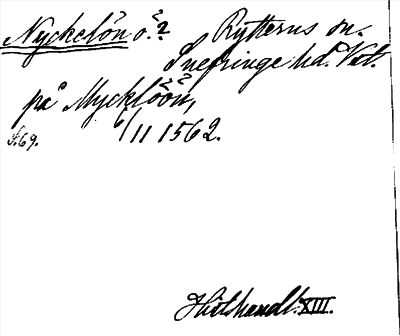 Nyckelön ö.? Rytterns sn.
Snefringe hd. Vstl.
på Mycklöön,
6/11 1562.
S.69.
Hist.handl. XIII.